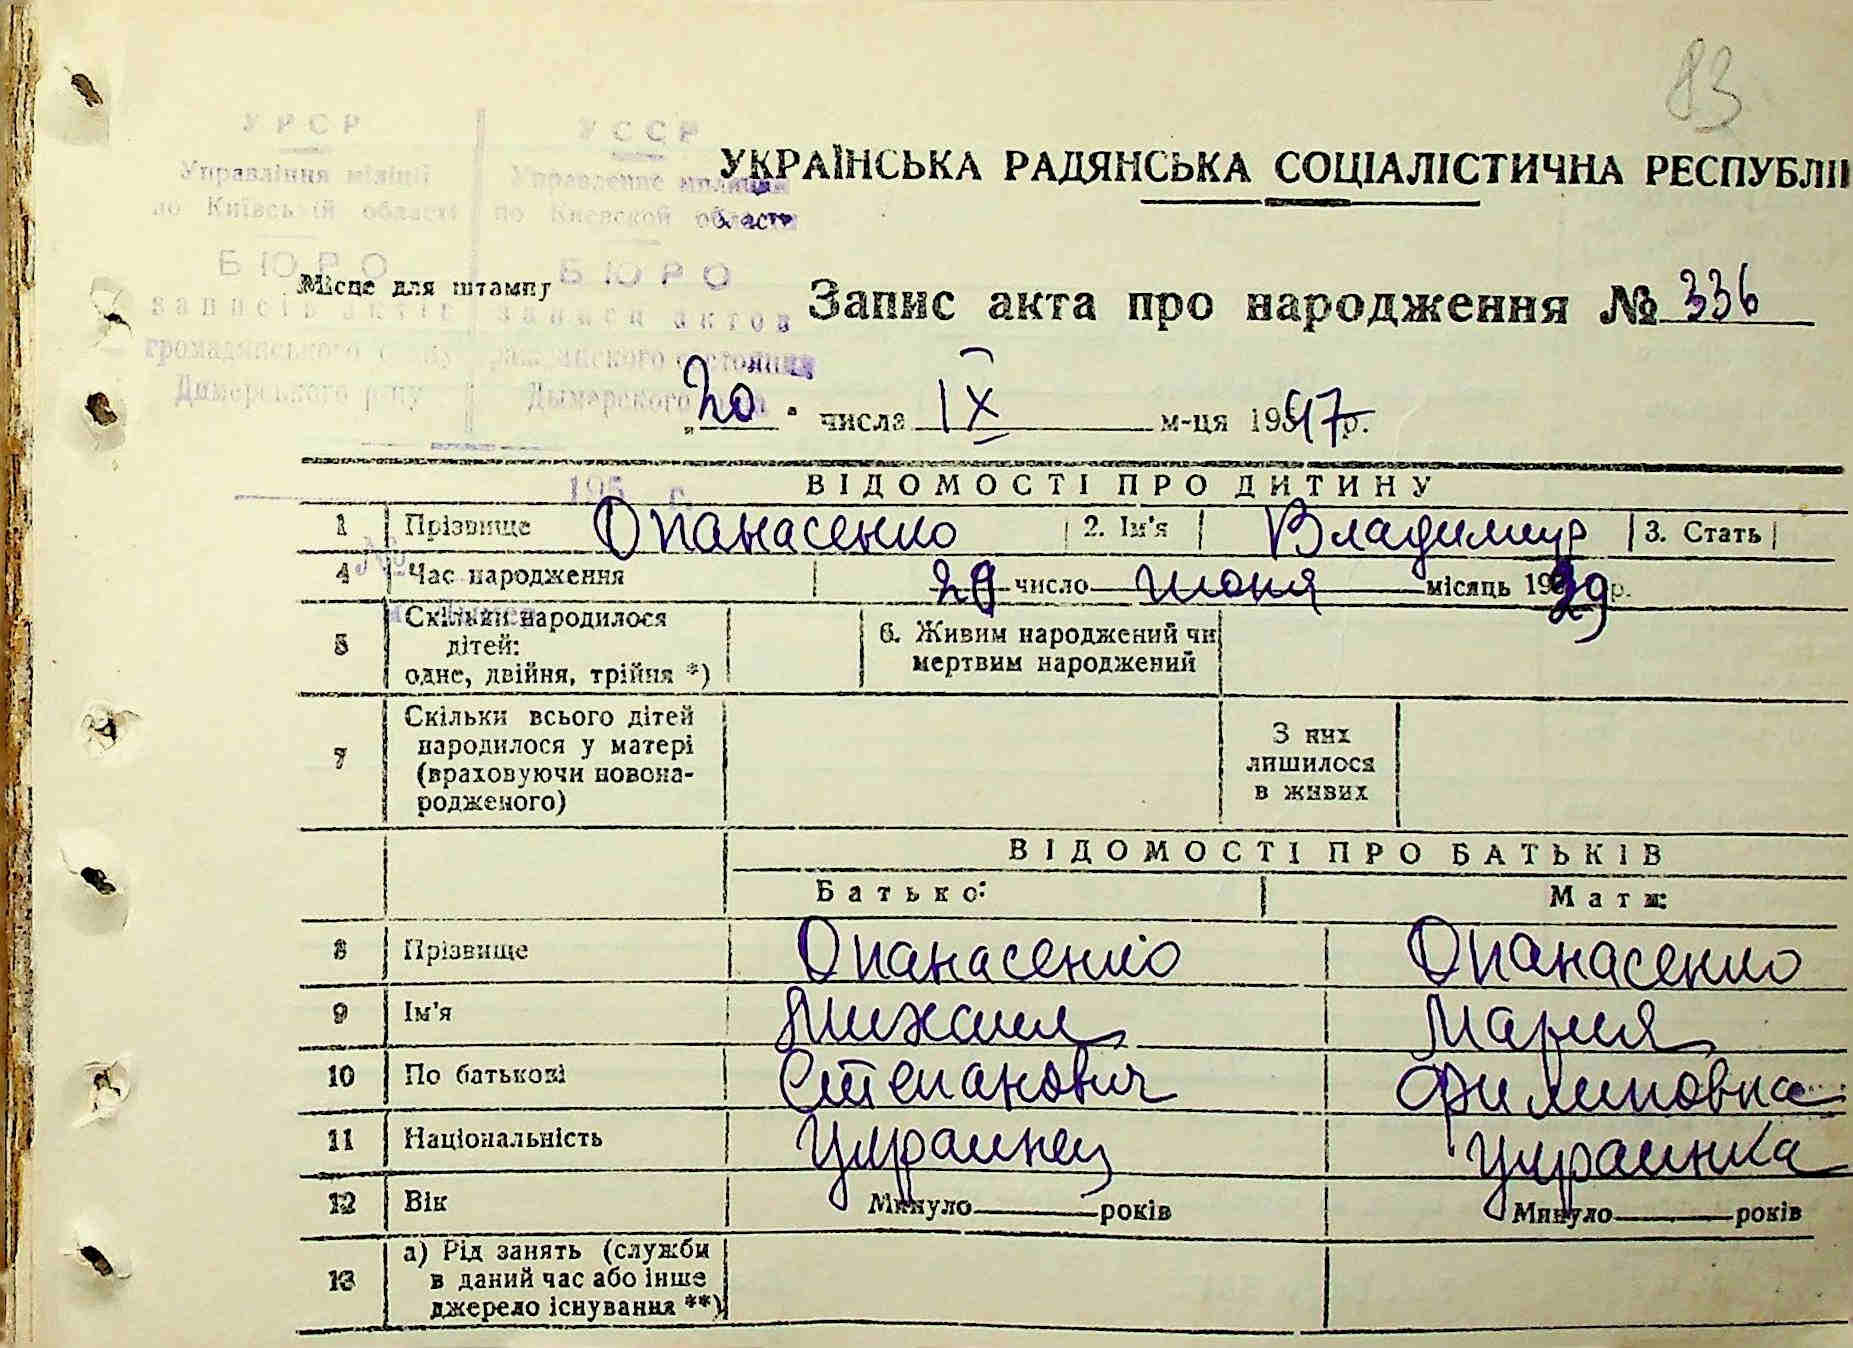 83
УРСР УССР
Управління міліції Управление милиции
по Київській області по Киевской области
УКРАЇНСЬКА РАДЯНСЬКА СОЦІАЛІСТИЧНА РЕСПУБЛІ
БЮРО БЮРО
Місце для штампу
записів актів записи актов
Запис акта про народження № 336
громадянського стану гражданского состояния
Дымерського р-ну Дымерского р-на
"20" числа IX м-ця 1947 р.
195 г.
ВІДОМОСТІ ПРО ДИТИНУ
1 Прізвище Опанасенко 2. Ім'я Владимир 3. Стать
№
4 Час народження число июня місяць 1929 р.
5 Скільки народилося
дітей:
одне, двійня, трійня *)
6. Живим народжений чи
мертвим народжений
7 Скільки всього дітей
народилося у матері
(враховуючи новона-
родженого)
З них
лишилося
в живих
ВІДОМОСТІ ПРО БАТЬКІВ
Батько: Мати:
8 Прізвище Опанасенко Опанасенко
9 Ім'я Михаил Мария
10 По батькові Степанович Филиповна
11 Національність Украинец Украинка
12 Вік Минуло років Минуло років
13 а) Рід занять (служби
в даний час або інше
джерело існування **)